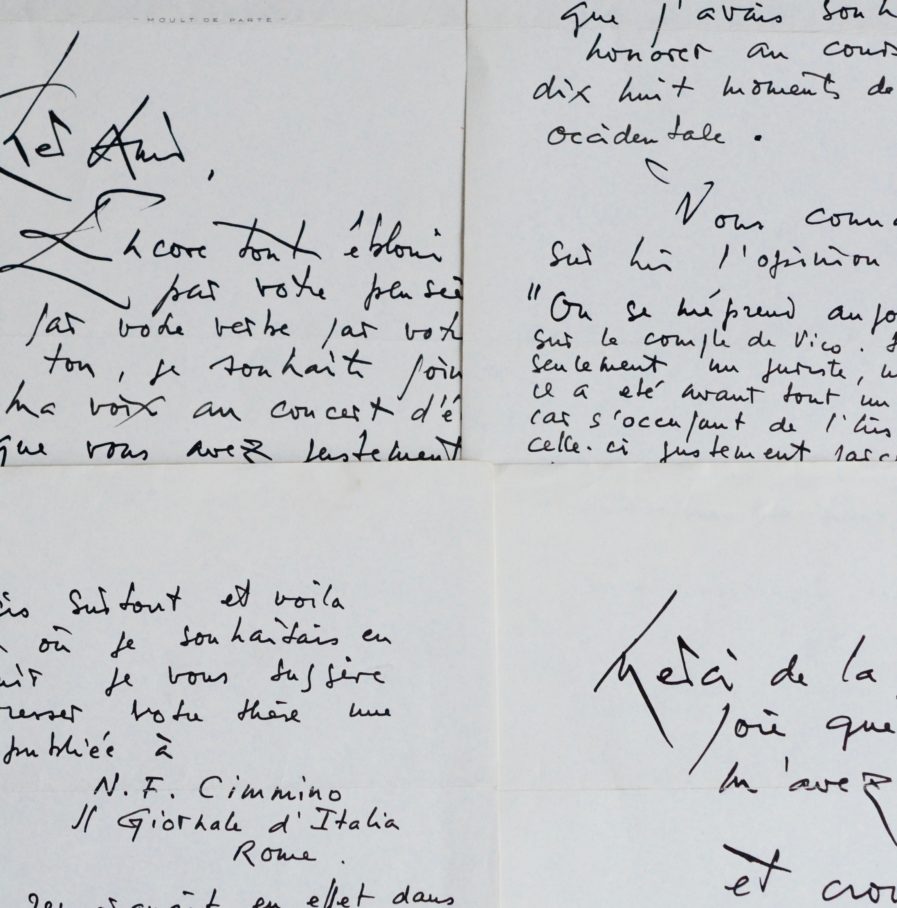 MOULT DE PARTE
Ami,
Encore tout ébloui
par votre pensée
par votre verbe par votr
ton, je souhaite join
ma voix au concert d'é
que vous avez justement
que j'avais souh
honorer au cours
dix huit moments de
occidentale.
Nous conna
sur lui l'opinion
"On se méprend aujo
sur le compte de Vico.
seulement un juriste, u
ce a été avant tout un
car s'occupant de l'his
celle-ci justement parc
surtout et voila
où je souhaitais en
je vous suggère
resser votre thèse une
publiée à
N. F. Cimmino
Il Giornale d'Italia
Rome.
en effet dans
Merci de la
joie que
m'avez
et croi